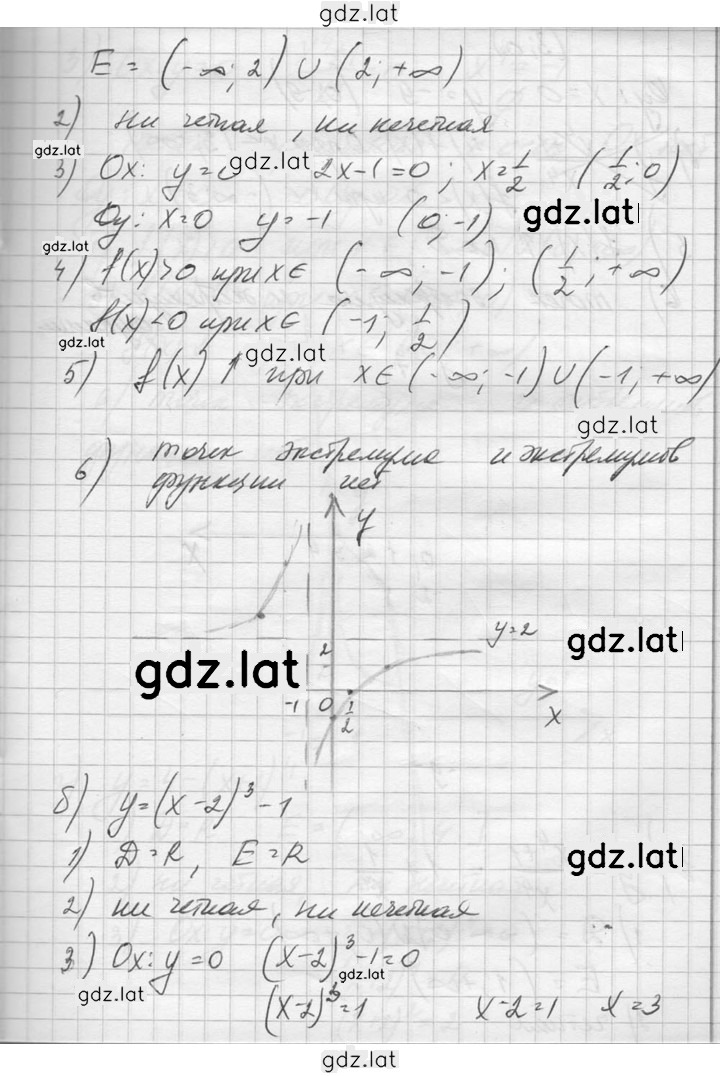 gdz.lat
E = (-∞; 2) ∪ (2; +∞)
2) ни четная, ни нечетная
gdz.lat
3) Ox: y=0 gdz.lat 2x-1=0; x=1/2 (1/2; 0)
Oy: x=0 y=-1 (0; -1) gdz.lat
4) f(x)>0 при x∈ (-∞; -1); (1/2; +∞)
f(x)<0 при x∈ (-1; 1/2)
gdz.lat gdz.lat
5) f(x) ↑ при x∈(-∞; -1)∪(-1; +∞)
gdz.lat
6) точек экстремума и экстремумов
функции нет
y
y=2
gdz.lat
2
gdz.lat
-1 0 1/2 x
б) y=(x-2)³-1
1) D=R, E=R
gdz.lat
2) ни четная, ни нечетная
3) Ox: y=0 (x-2)³-1=0
gdz.lat
gdz.lat
(x-2)³=1 x-2=1 x=3
gdz.lat